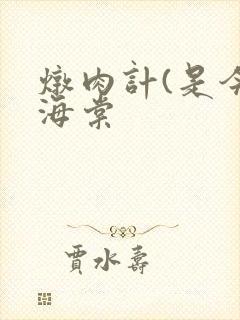 燉肉計(是
海棠
賈水壽